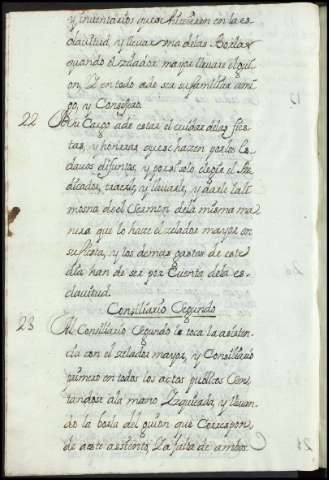 y inventarios que se hizieren en la es
clauitud, y lleuar una de las Borlas
quando el zelador mayor lleuare el guion,
y en todo ade ser su familiar ami
go, y Consejero.
22 A su Cargo ade estar el cuidar de las fies
tas, y honrras, que se hazen por los Es
clauos difuntos, y por solo, elegir el Pre
dicador, traerle, y lleuarle, y darle la li
mosna de el Sermon de la misma ma
nera que lo haze el zelador mayor en
su fiesta, y los demas gastos de este
dia han de ser por Cuenta de la es
clauitud.
Consiliario Segundo
23 Al Consiliario Segundo le toca la asisten
cia con el zelador mayor, y Consiliario
primero en todos los actos publicos Sen
tandose a la mano Yzquierda, y lleuan
do la borla del guion que Corespon
de a este asiento, y a falta de ambos